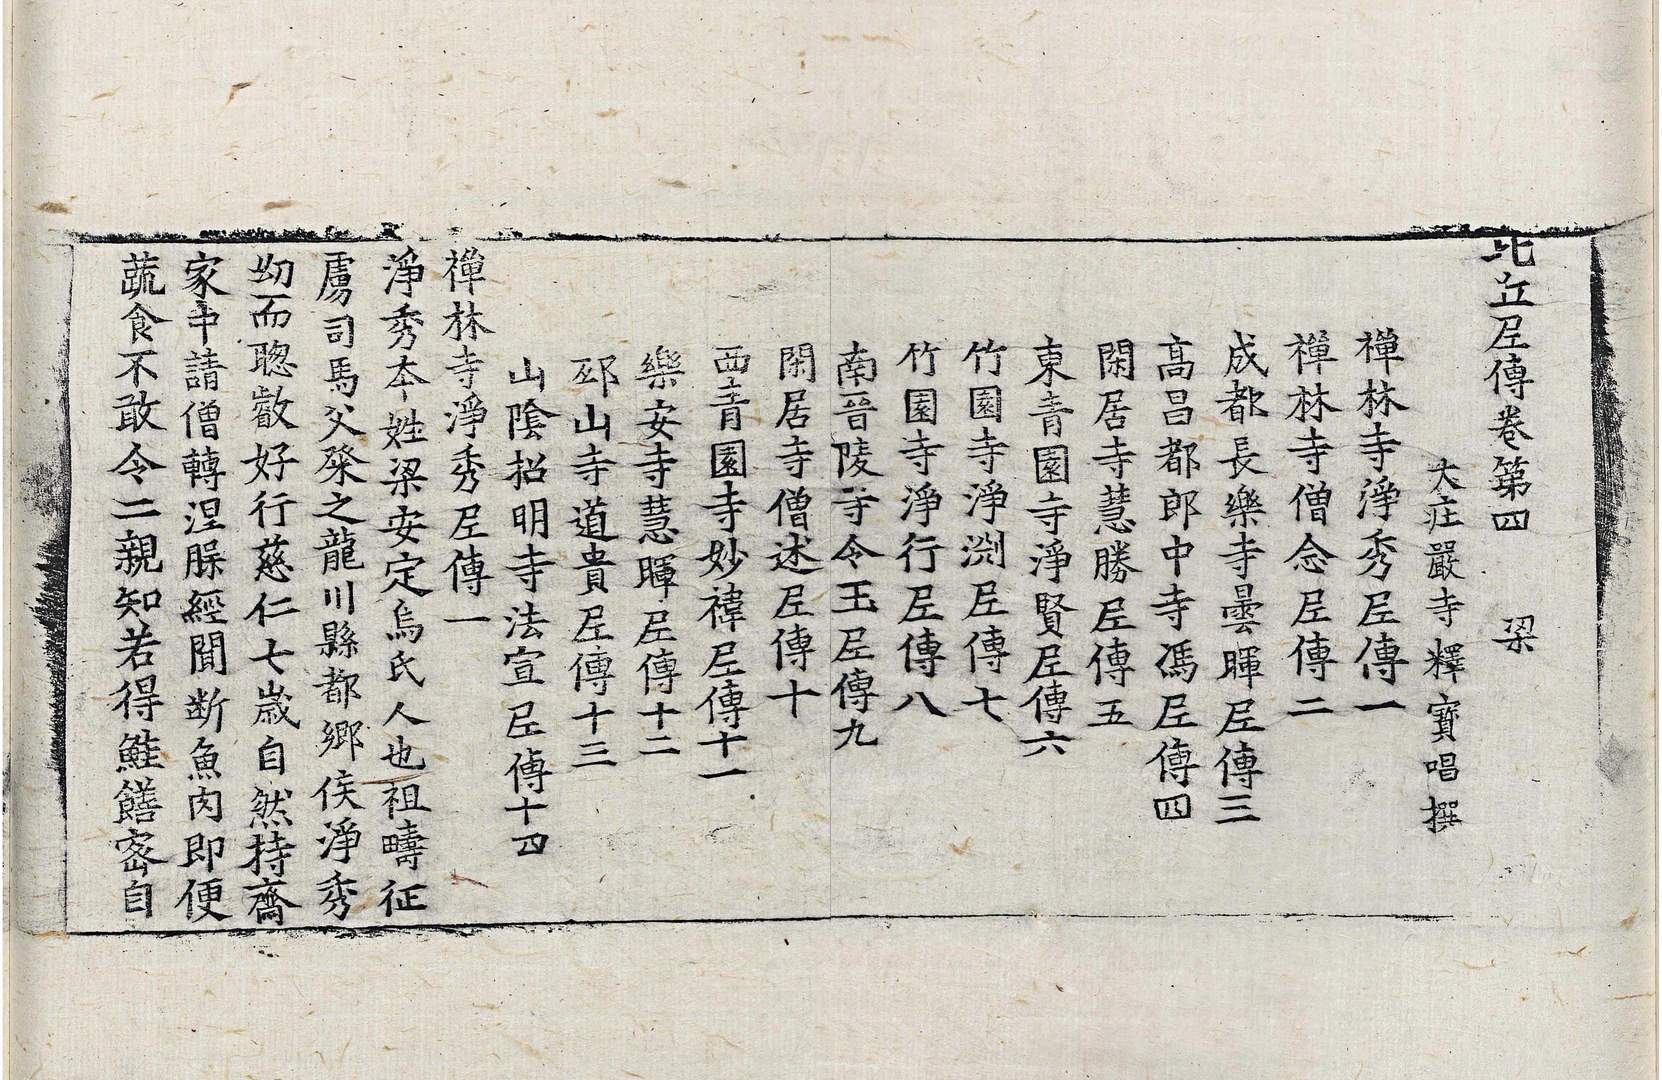 比丘尼傳卷第四　梁
大莊嚴寺釋寶唱撰
禪林寺淨秀尼傳一
禪林寺僧念尼傳二
成都長樂寺曇暉尼傳三
高昌都郎中寺馮尼傳四
閑居寺慧勝尼傳五
東青園寺淨賢尼傳六
竹園寺淨淵尼傳七
竹園寺淨行尼傳八
南晉陵寺令玉尼傳九
閑居寺僧述尼傳十
西青園寺妙禕尼傳十一
樂安寺慧暉尼傳十二
邳山寺道貴尼傳十三
山陰招明寺法宣尼傳十四
禪林寺淨秀尼傳一
淨秀本姓梁安定烏氏人也祖疇征
虜司馬父粲之龍川縣都鄉侯淨秀
幼而聰叡好行慈仁七歲自然持齋
家中請僧轉涅槃經聞斷魚肉即便
蔬食不敢令二親知若得鮭饍密自